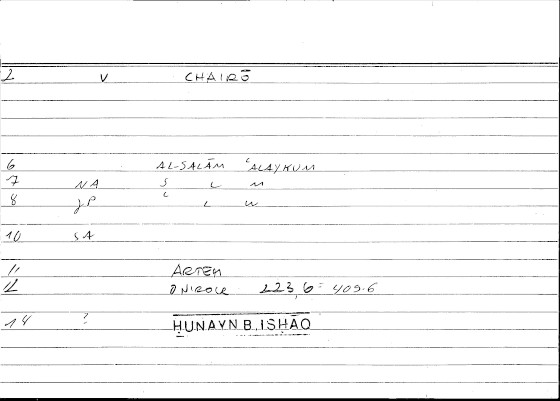 2 V CHAIRŌ
6 AL-SALĀM ʿALAYKUM
7 NA S L M
8 JP ʿ L W
10 SA
11 ARTEM
12 ONIROCR 223,6 = 409.6
14 ? ḤUNAYN B. ISḤĀQ